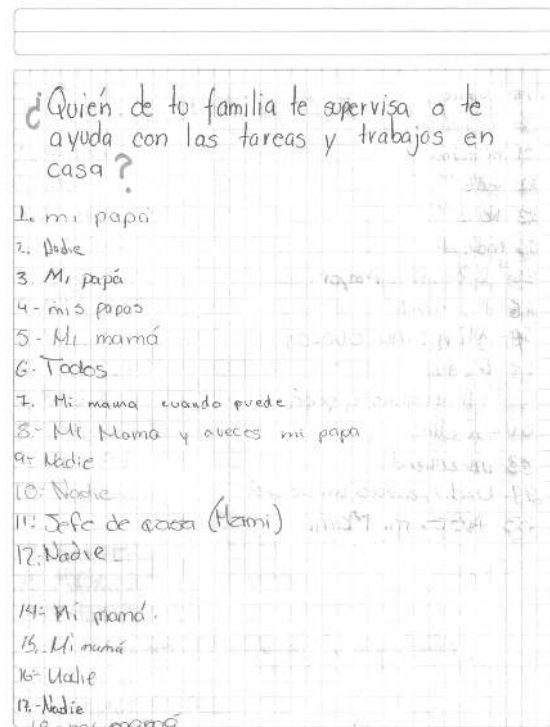 ¿Quién de tu familia te supervisa o te
ayuda con las tareas y trabajos en
casa?
1. mi papá
2. Nadie
3. Mi papá
4- mis papas
5- Mi mamá
6. Todos
7. Mi mama cuando puede
8- Mi Mama y aveces mi papá
9- Nadie
10- Nadie
11- Jefe de casa (Mami)
12- Nadie
14- Mi mamá.
15. Mi mamá
16- Nadie
17.-Nadie
18- mi mamá